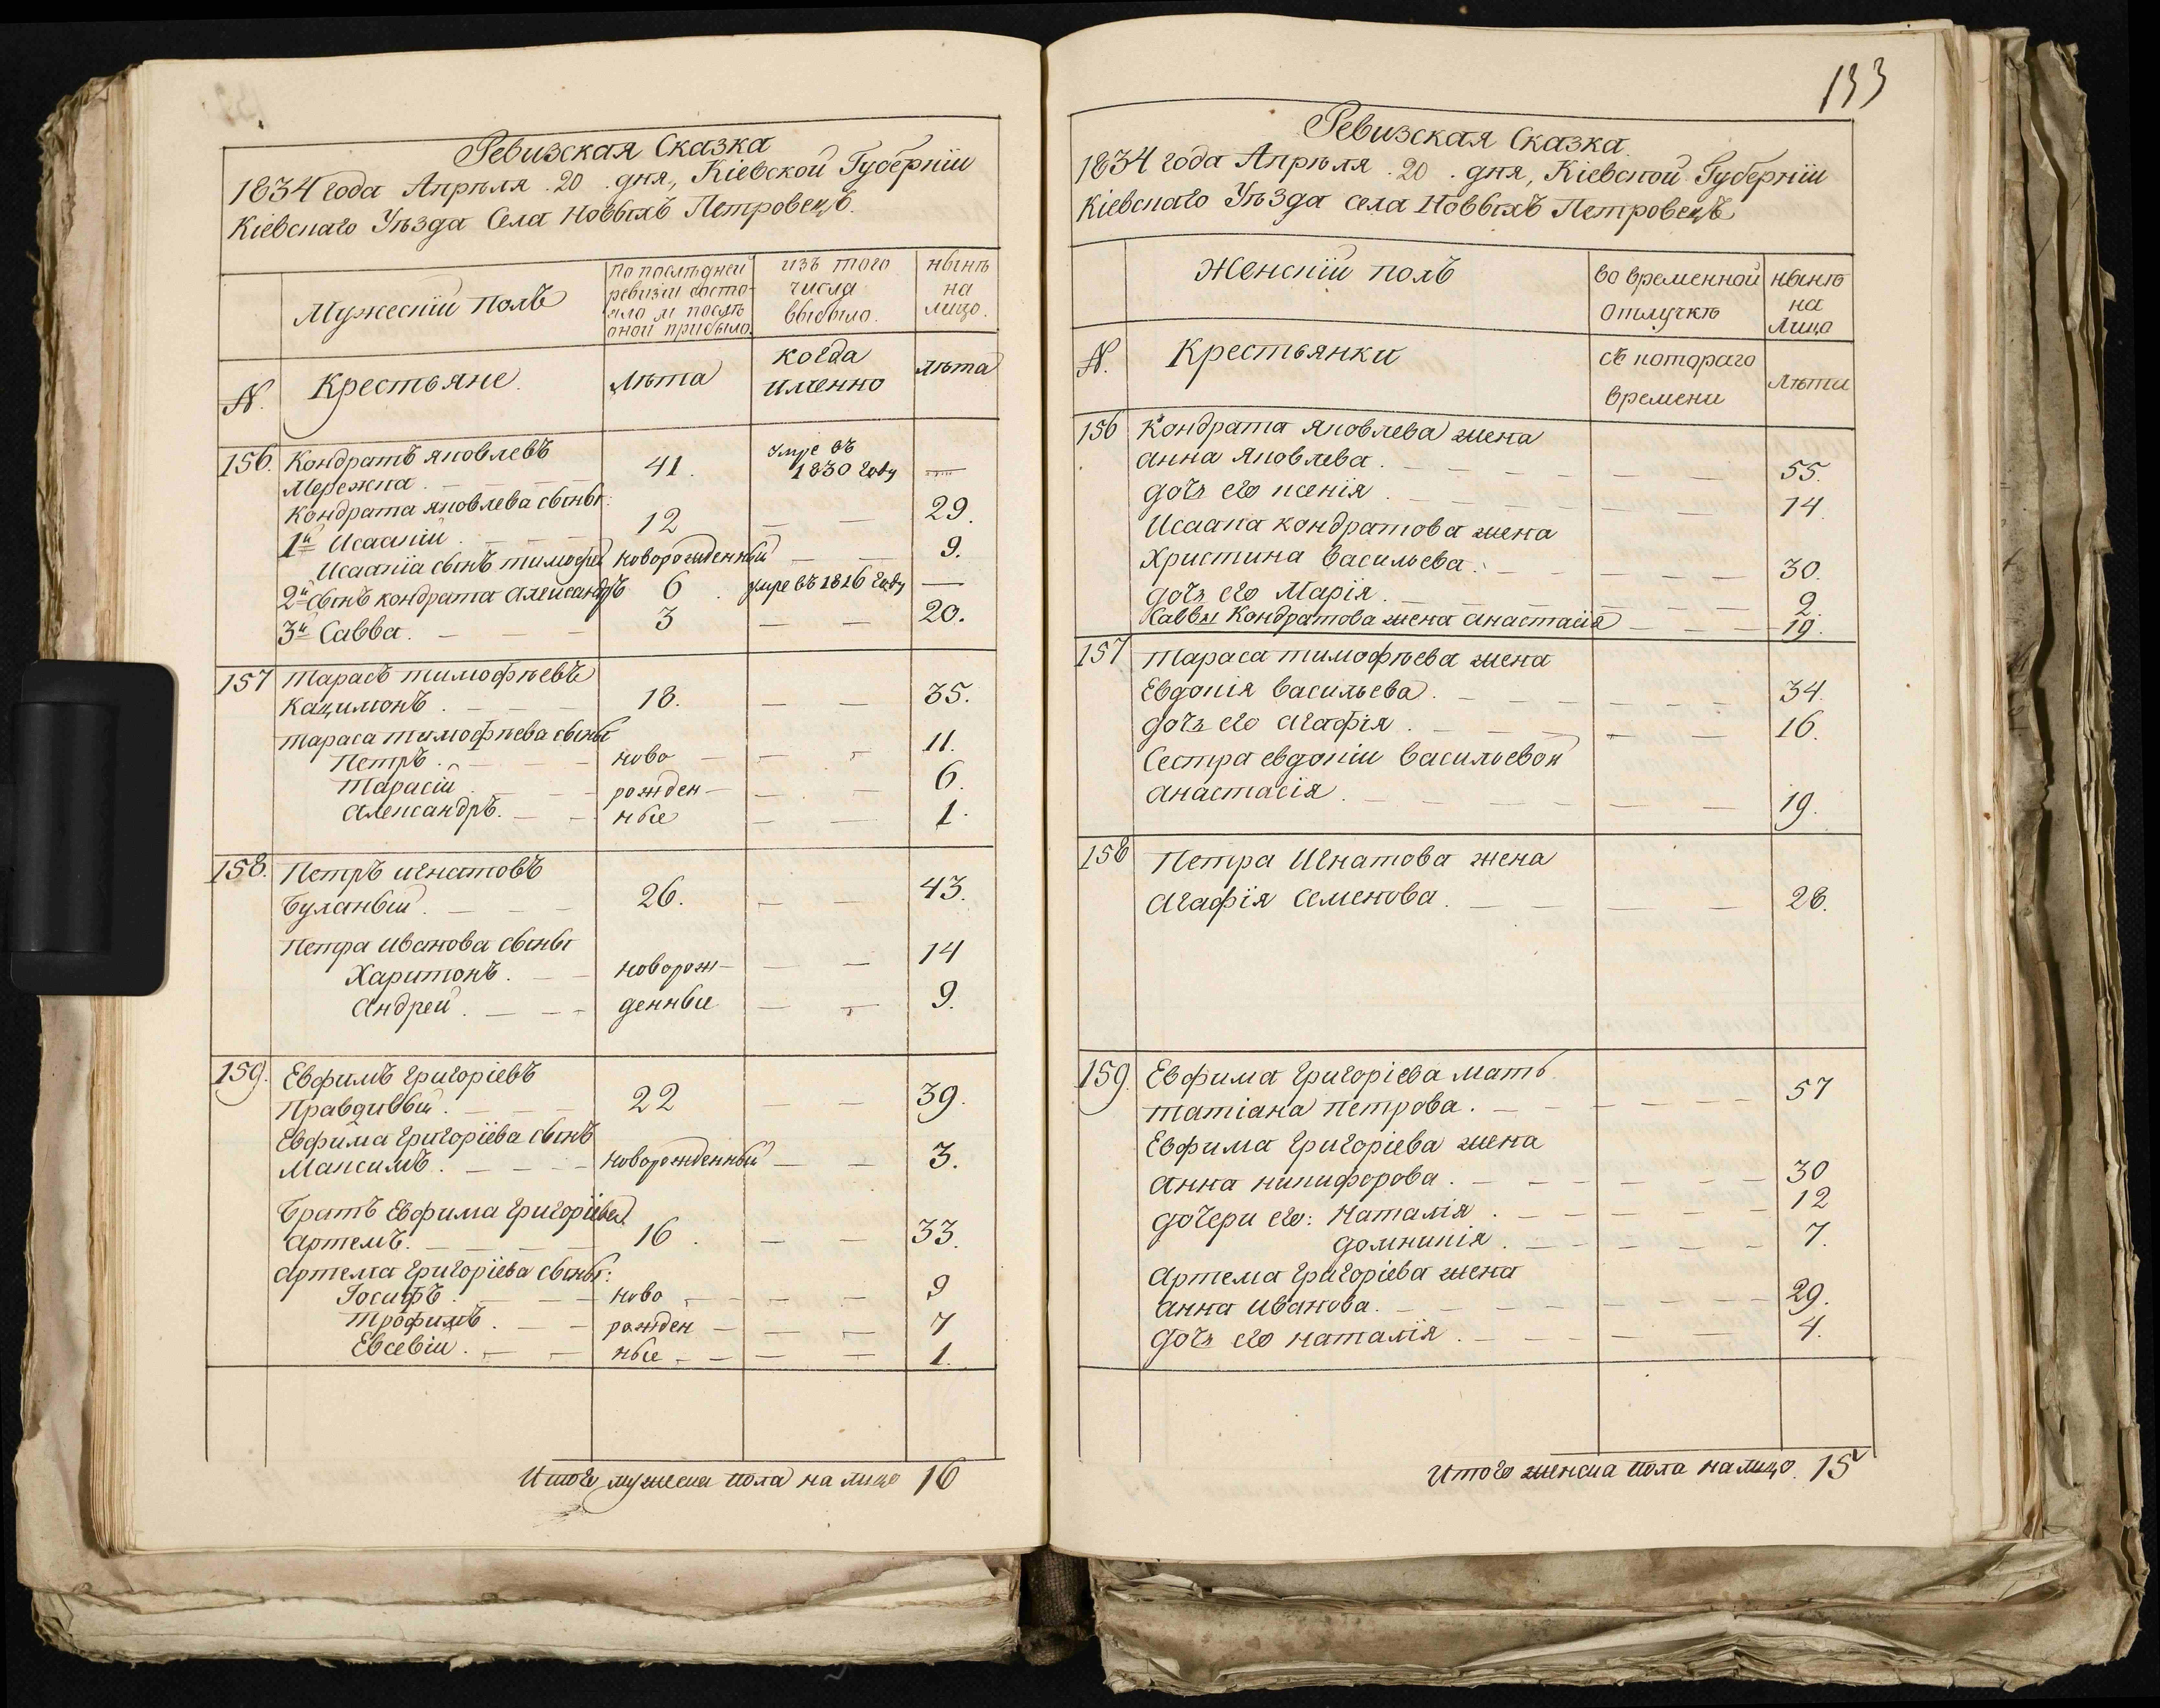 Ревизская Сказка
1834 года Апрѣля 20 дня, Кіевской Губерніи
Кіевскаго Уѣзда Села Новыхъ Петровецъ.
Мужескій полъ
по послѣдней ревизіи состояло и послѣ оной прибыло.
изъ того числа выбыло.
нынѣ на лицо.
N. Крестьяне.
Лѣта
когда именно
лѣта
156. Кондратъ Яковлевъ
Мережка. 41. умре въ 1830 году —
Кондрата Яковлева сыны:
1й Исаакій. 12 — — 29.
Исаакія сынъ Тимофей новорожденный — 9.
2й сынъ Кондрата Александръ 6. умре въ 1826 году —
3й Савва. 3 — — 20.
157 Тарасъ Тимофѣевъ
Кацимонъ. 18. — — 35.
Тараса Тимофѣева сыны
Петръ. ново — 11.
Тарасій рожден— — 6.
Александръ. ные — 1.
158. Петръ Игнатовъ
Буланый. 26. — — 43.
Петра Иванова сыны
Харитонъ. новорож— — 14
Андрей. денные — 9.
159. Евфимъ Григоріевъ
Правдивый. 22 — — 39.
Евфима Григоріева сынъ
Максимъ. новорожденный — — 3.
Братъ Евфима Григоріева
Артемъ. 16. — — 33.
Артема Григоріева сыны:
Іосифъ. ново — 9
Трофимъ. рожден — 7
Евсевій. ные — 1.
Итого мужеска пола на лицо 16
133
Ревизская Сказка
1834 года Апрѣля 20. дня, Кіевской Губерніи
Кіевскаго Уѣзда села Новыхъ Петровецъ
Женскій полъ
во временной отлучкѣ
нынѣ на Лицо
N. Крестьянки
съ котораго времени
лѣта
156 Кондрата Яковлева жена
Анна Яковлева. — 55.
дочь его Ксенія. — 14.
Исаака Кондратова жена
Христина Васильева. — 30.
дочь его Марія. — 2.
Саввы Кондратова жена Анастасія — 19.
157 Тараса Тимофѣева жена
Евдокія Васильева. — 34.
дочь его Агафія. — 16.
Сестра Евдокіи Васильевой
Анастасія. — 19.
158 Петра Игнатова жена
Агафія Семенова. — 28.
159. Евфима Григоріева мать
Татіана Петрова. — 57
Евфима Григоріева жена
Анна Никифорова. — 30
дочери его: Наталія. — 12
Домникія. — 7.
Артема Григоріева жена
Анна Иванова. — 29.
дочь его Наталія. — 4.
Итого женска пола на лицо. 15